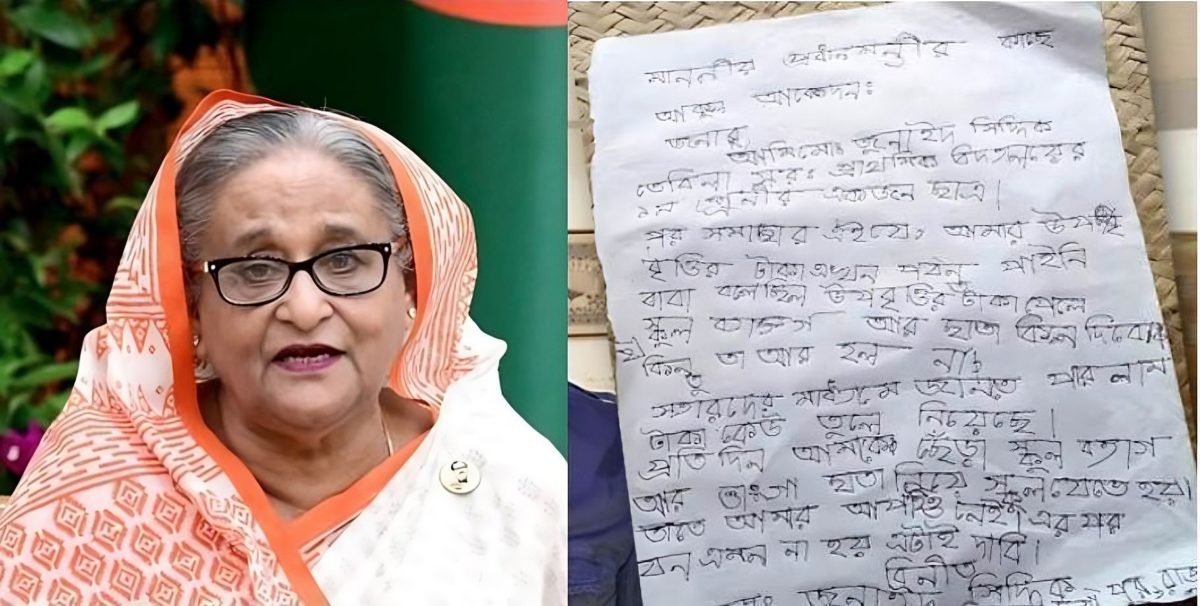 মাননীয় প্রধানমন্ত্রীর কাছে
আকুল আবেদন:
জনাব
আমি মোঃ জুনাইদ সিদ্দিক
তেবিলা সরঃ প্রাথমিক বিদ্যালয়ের
শ্রেনীর একজন ছাত্র।
পর সমাচার এইযে, আমার
বৃত্তির টাকা এখন পযন্ত পাইনি
বাবা বলেছিল উপবৃত্তির টাকা পেলে
স্কুল ব্যাগ আর ছাতা কিনে দিবে
কিন্তু তা আর হল না;
স্যারদের মাধ্যমে জানতে পারলাম
টাকা কেউ তুলে নিয়েছে।
প্রতিদিন আমাকে ছেঁড়া স্কুল ব্যাগ
আর ভাংগা ছাতা নিয়ে স্কুল যেতে হয়।
তাতে আমার আপত্তি নেই। এর পর
যেন এমন না হয় এটাই দাবি।
বিনীত
মোঃ জুনাইদ সিদ্দিক